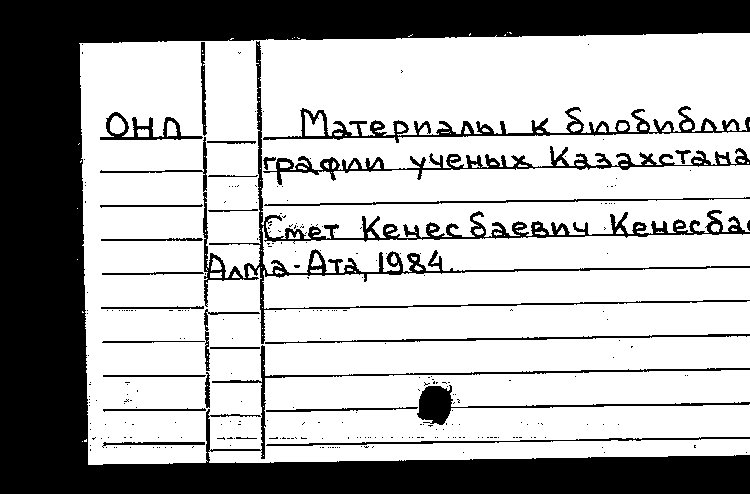 ОНП Материалы к биобиблио
графии ученых Казахстана
Смет Кенесбаевич Кенесбае
Алма-Ата, 1984.